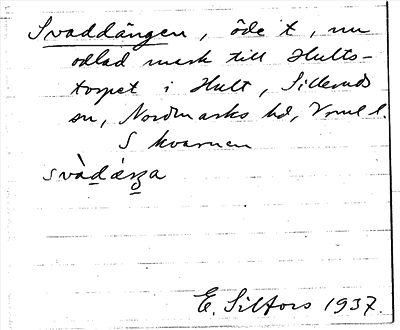 Svaddången, öde t, nu
odlad mark till Hults-
torpet i Hult, Silleruds
sn, Nordmarks hd, Vrml l.
S kvarnen
E. Silfors 1937.